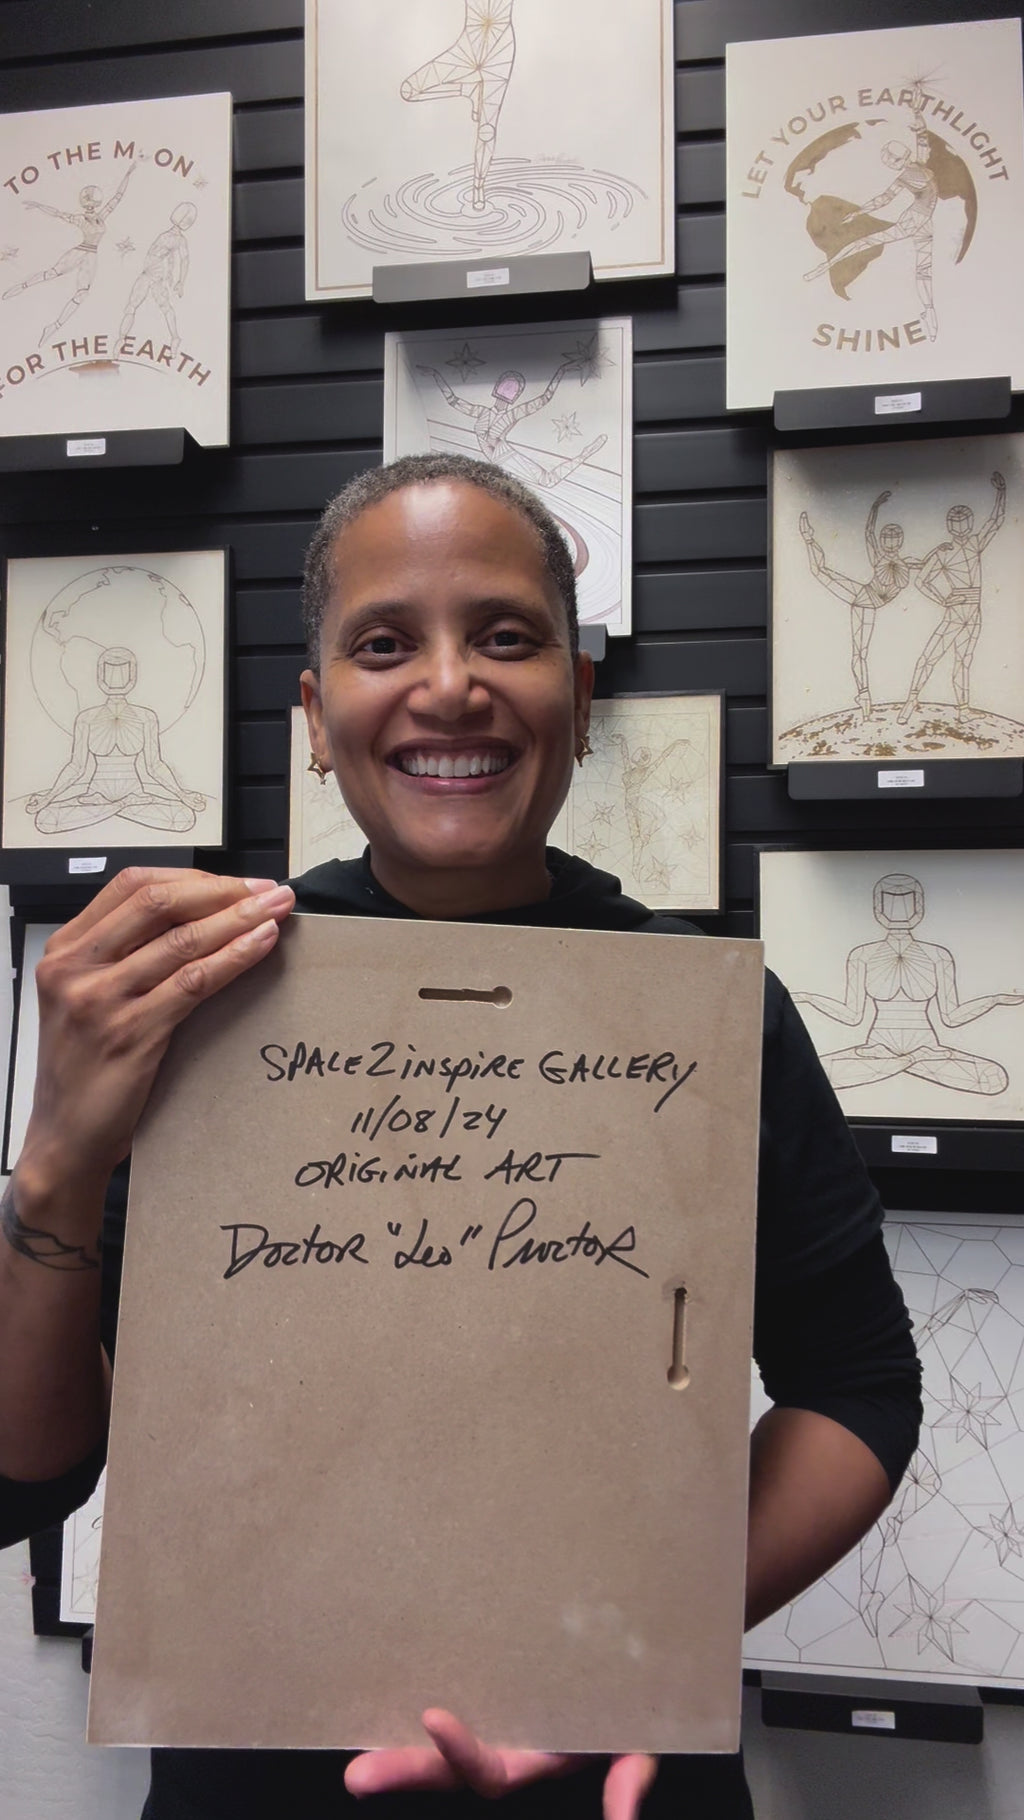 TO THE MOON
FOR THE EARTH
LET YOUR EARTHLIGHT
SHINE
SPACE2inspire GALLERY
11/08/24
ORIGINAL ART
DOCTOR "Leo" PROCTOR